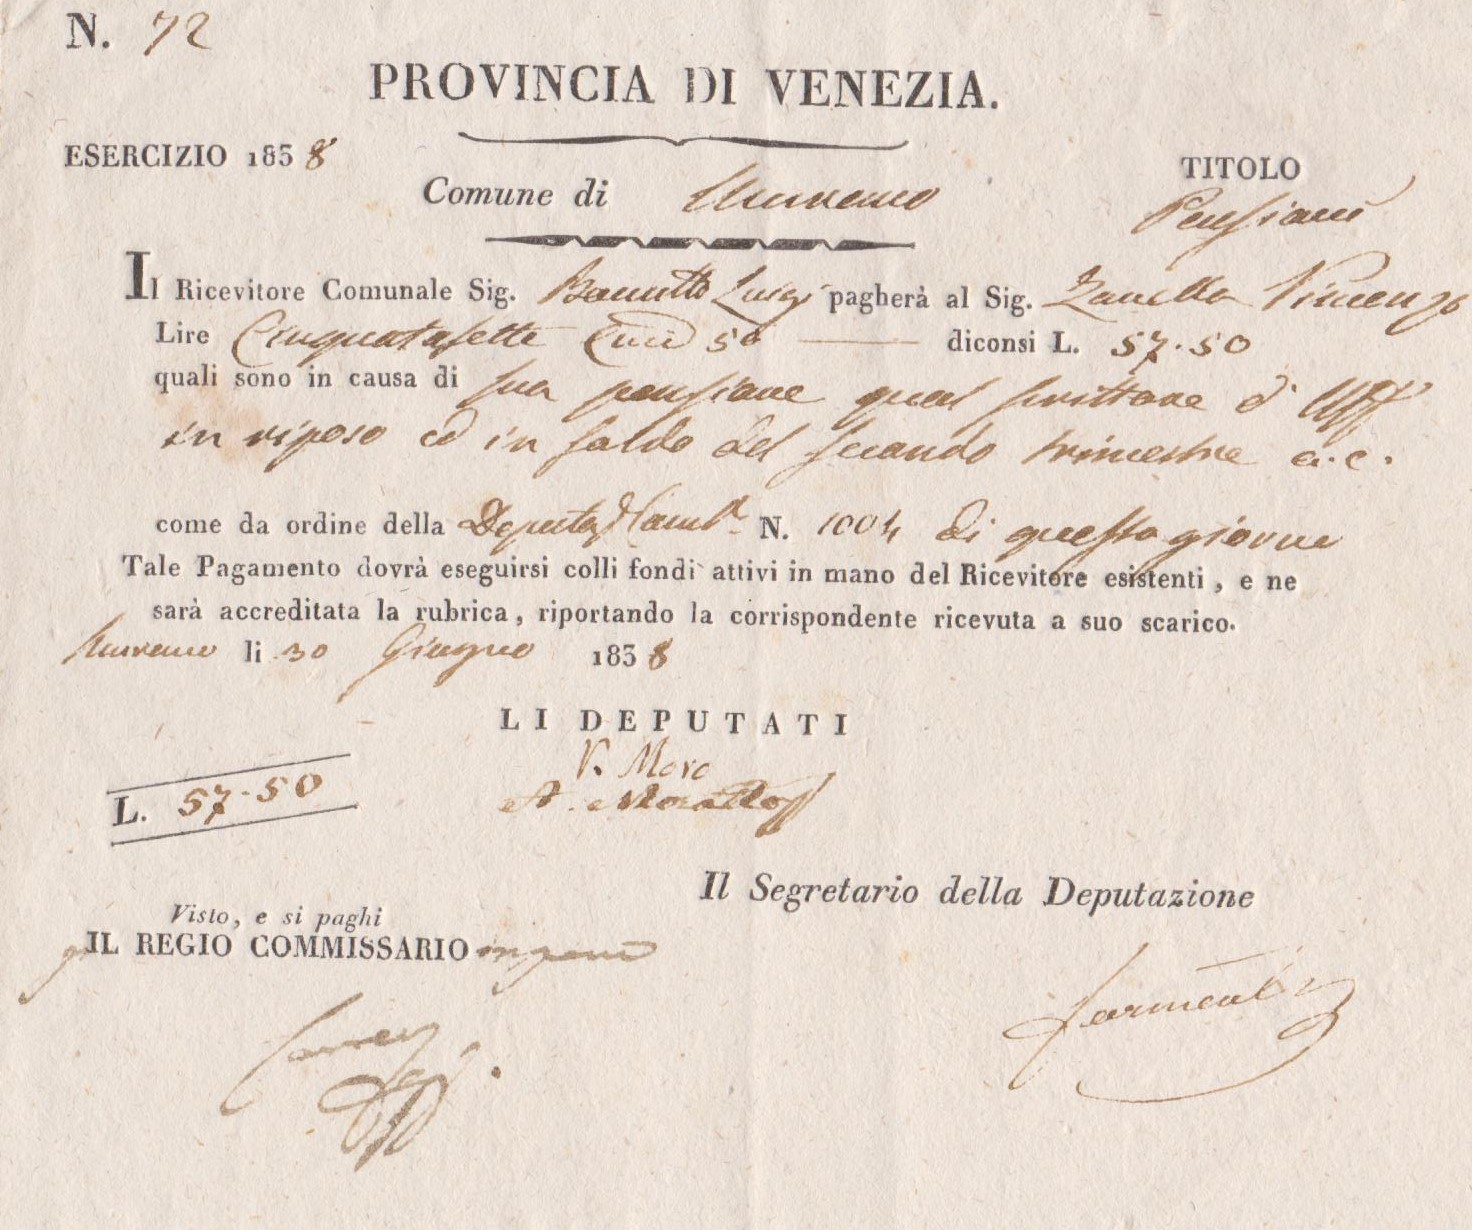 N. 72
PROVINCIA DI VENEZIA.
ESERCIZIO 1838
TITOLO
Comune di Murano
Pensioni
Il Ricevitore Comunale Sig. Luigi pagherà al Sig. Zanella Vincenzo
Lire Cinquantasette 50 diconsi L. 57.50
quali sono in causa di sua pensione qual scrittore d' Uff
in riposo ed in saldo del secondo trimestre a.c.
come da ordine della N. 1004 di questo giorno
Tale Pagamento dovrà eseguirsi colli fondi attivi in mano del Ricevitore esistenti, e ne
sarà accreditata la rubrica, riportando la corrispondente ricevuta a suo scarico.
Murano li 30 Giugno 1838
LI DEPUTATI
V. Moro
L. 57.50
A.
Il Segretario della Deputazione
Visto, e si paghi
IL REGIO COMMISSARIO